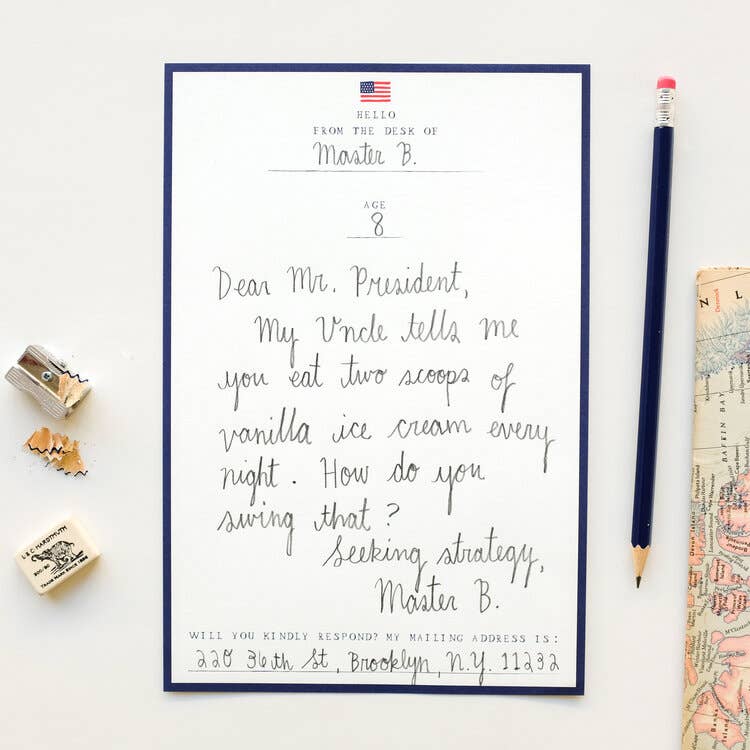 HELLO
FROM THE DESK OF
Master B.
AGE
8
Dear Mr. President,
My Uncle tells me
you eat two scoops of
vanilla ice cream every
night. How do you
swing that?
Seeking strategy,
Master B.
WILL YOU KINDLY RESPOND? MY MAILING ADDRESS IS:
220 36th St, Brooklyn, N.Y. 11232
L & C HARDTMUTH
TRADE MARK SINCE 1896
N L
BAFFIN BAY
Devon Island